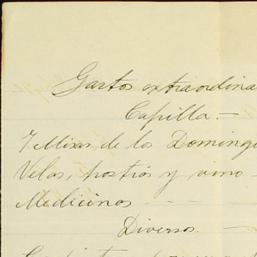 Gastos extraordina
Capilla.—
7 Misas de los Doming
Velas, hostias y vino —
Medicinas — —
Diversos. —